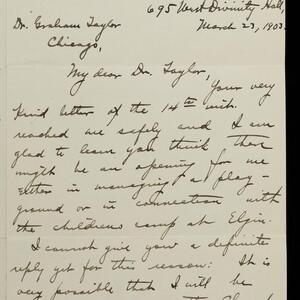 695 West Divinity Hall,
March 23, 1903.
Dr. Graham Taylor
Chicago,
My dear Dr. Taylor,
Your very
kind letter of the 14th inst.
reached me safely and I am
glad to learn you think there
might be an opening for me
either in managing a play-
ground or in connection with
the childrens camp at Elgin.
I cannot give you a definite
reply yet for this reason: It is
very possible that I will be